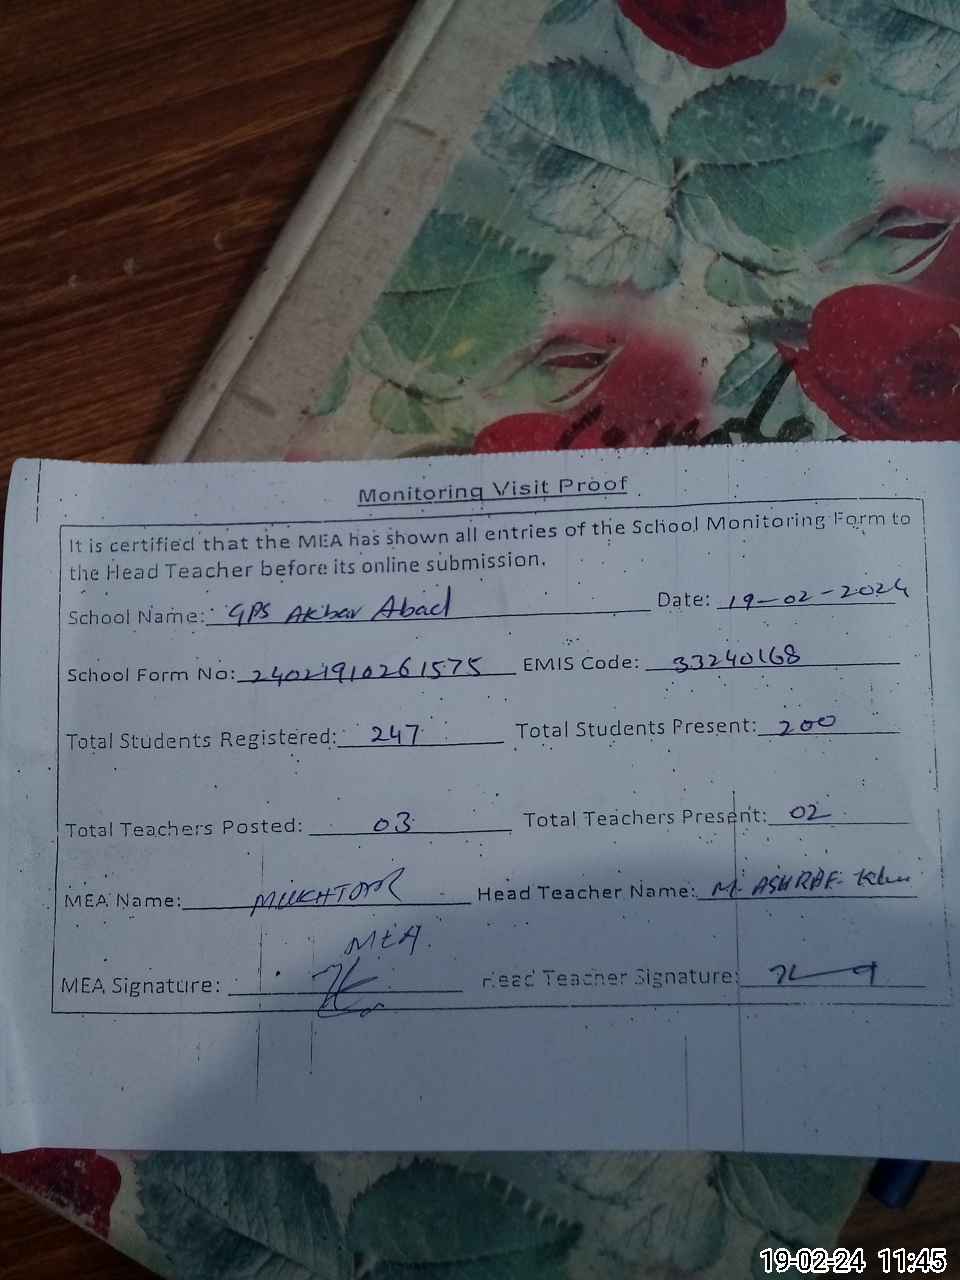 Monitoring Visit Proof
It is certified that the MEA has shown all entries of the School Monitoring Form to
the Head Teacher before its online submission.
School Name: GPS Akbar Abad Date: 19-02-2024
School Form No: 24021910261575 EMIS Code: 33240168
Total Students Registered: 247 Total Students Present: 200
Total Teachers Posted: 03 Total Teachers Present: 02
MEA Name: MUKHTAR Head Teacher Name: M. ASHRAF
MEA.
MEA Signature: Head Teacher Signature:
19-02-24 11:45